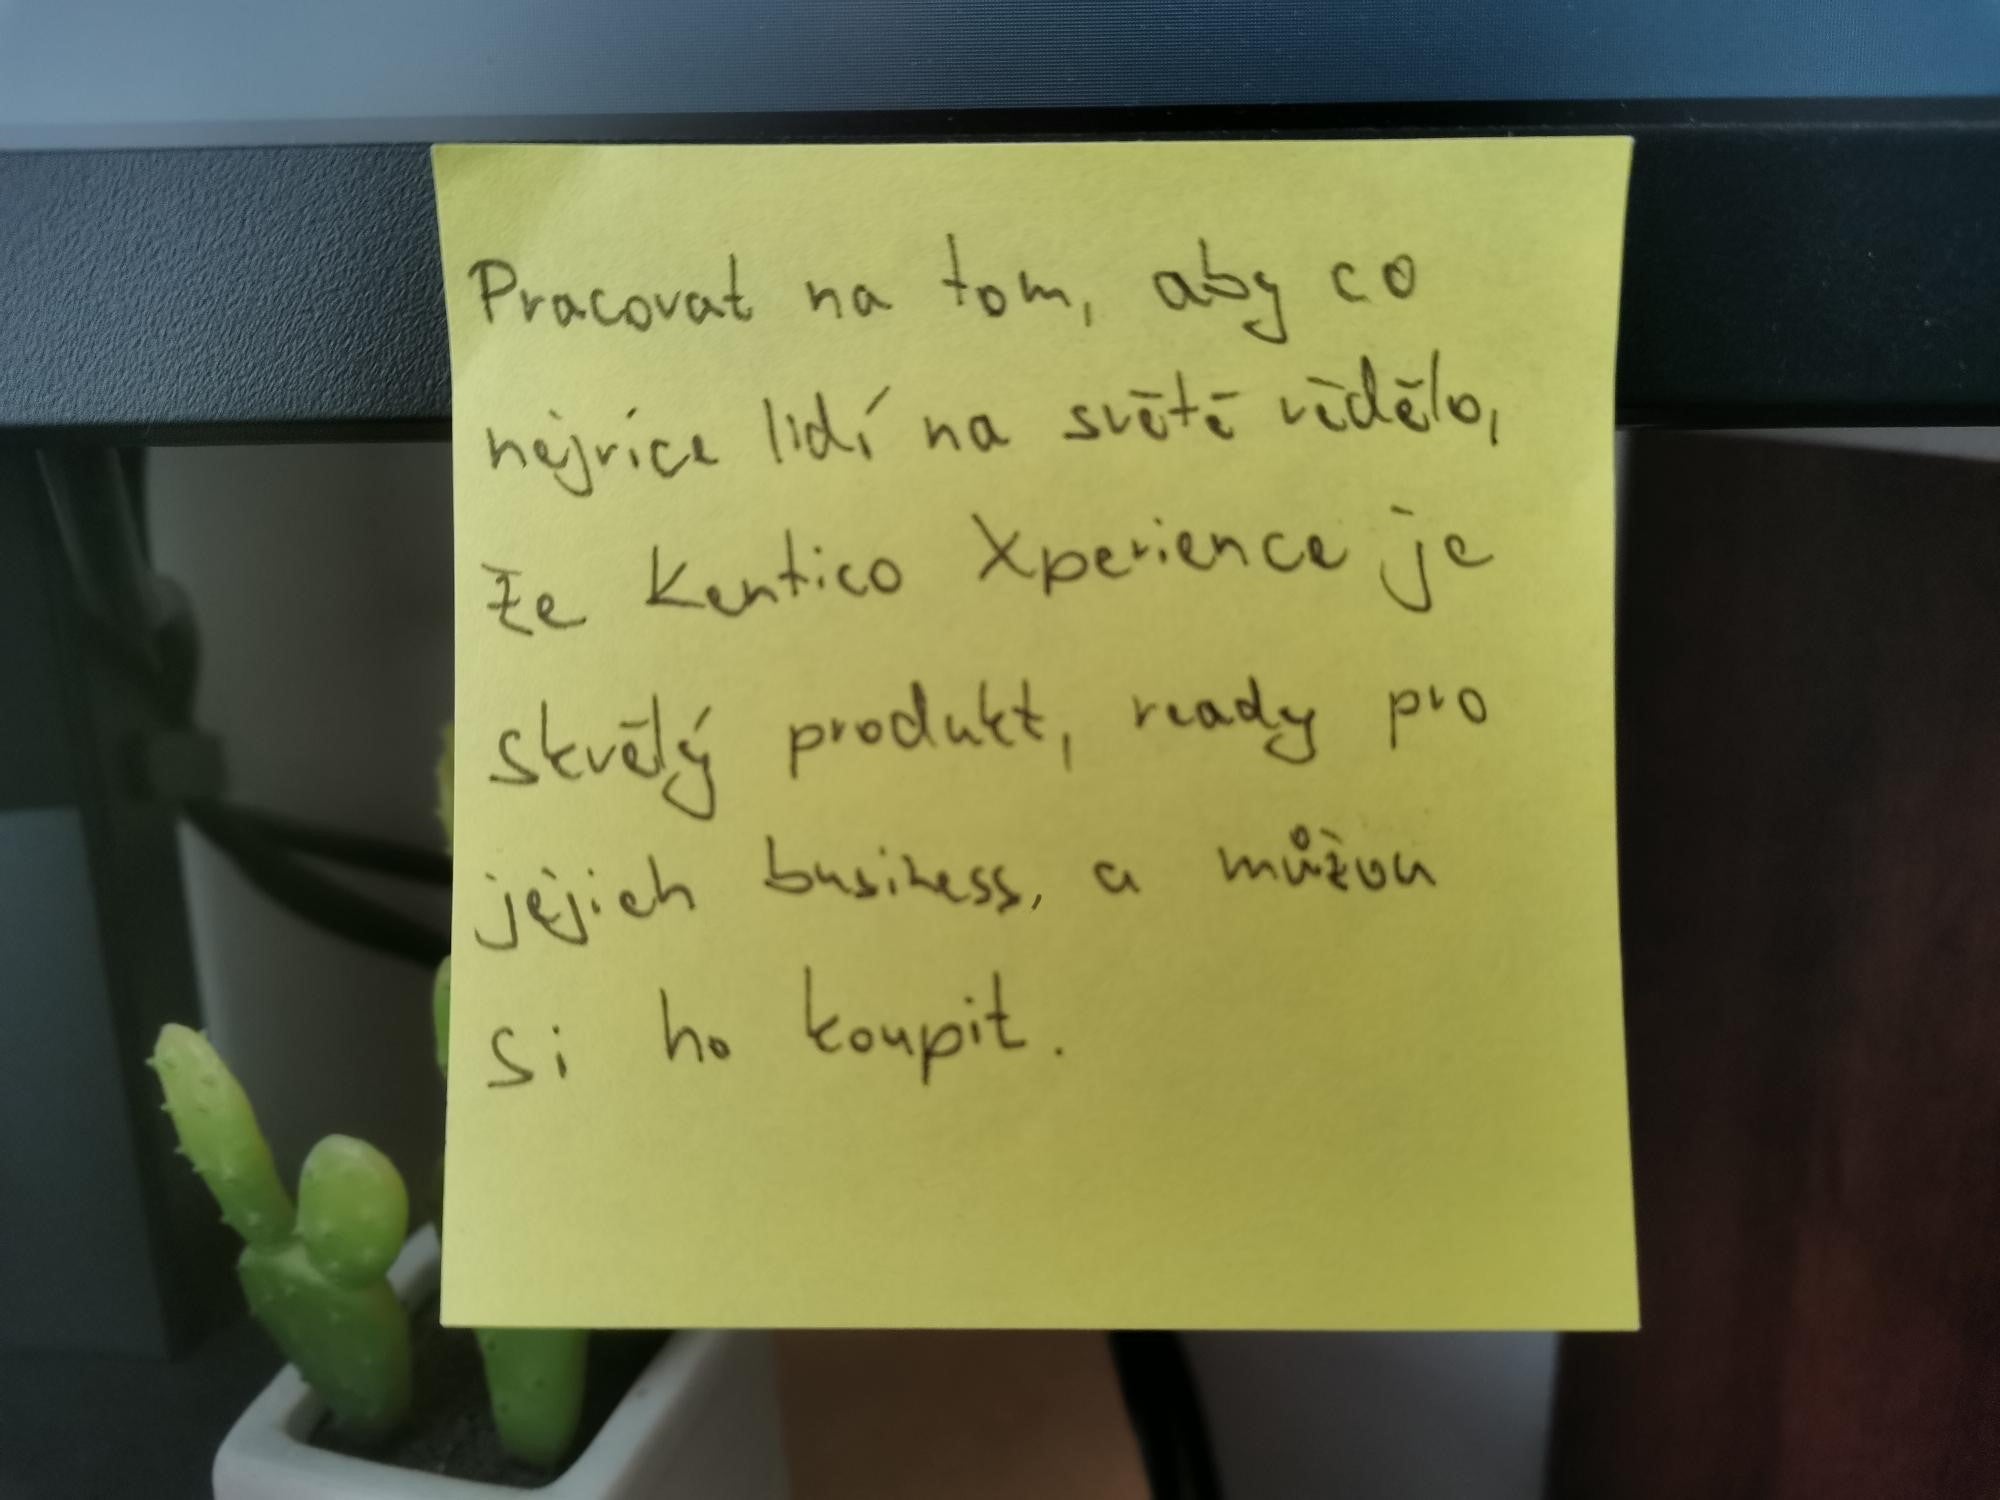 Pracovat na tom, aby co
nejvíce lidí na světě vědělo,
že Kentico Xperience je
skvělý produkt, ready pro
jejich business, a můžou
si ho koupit.